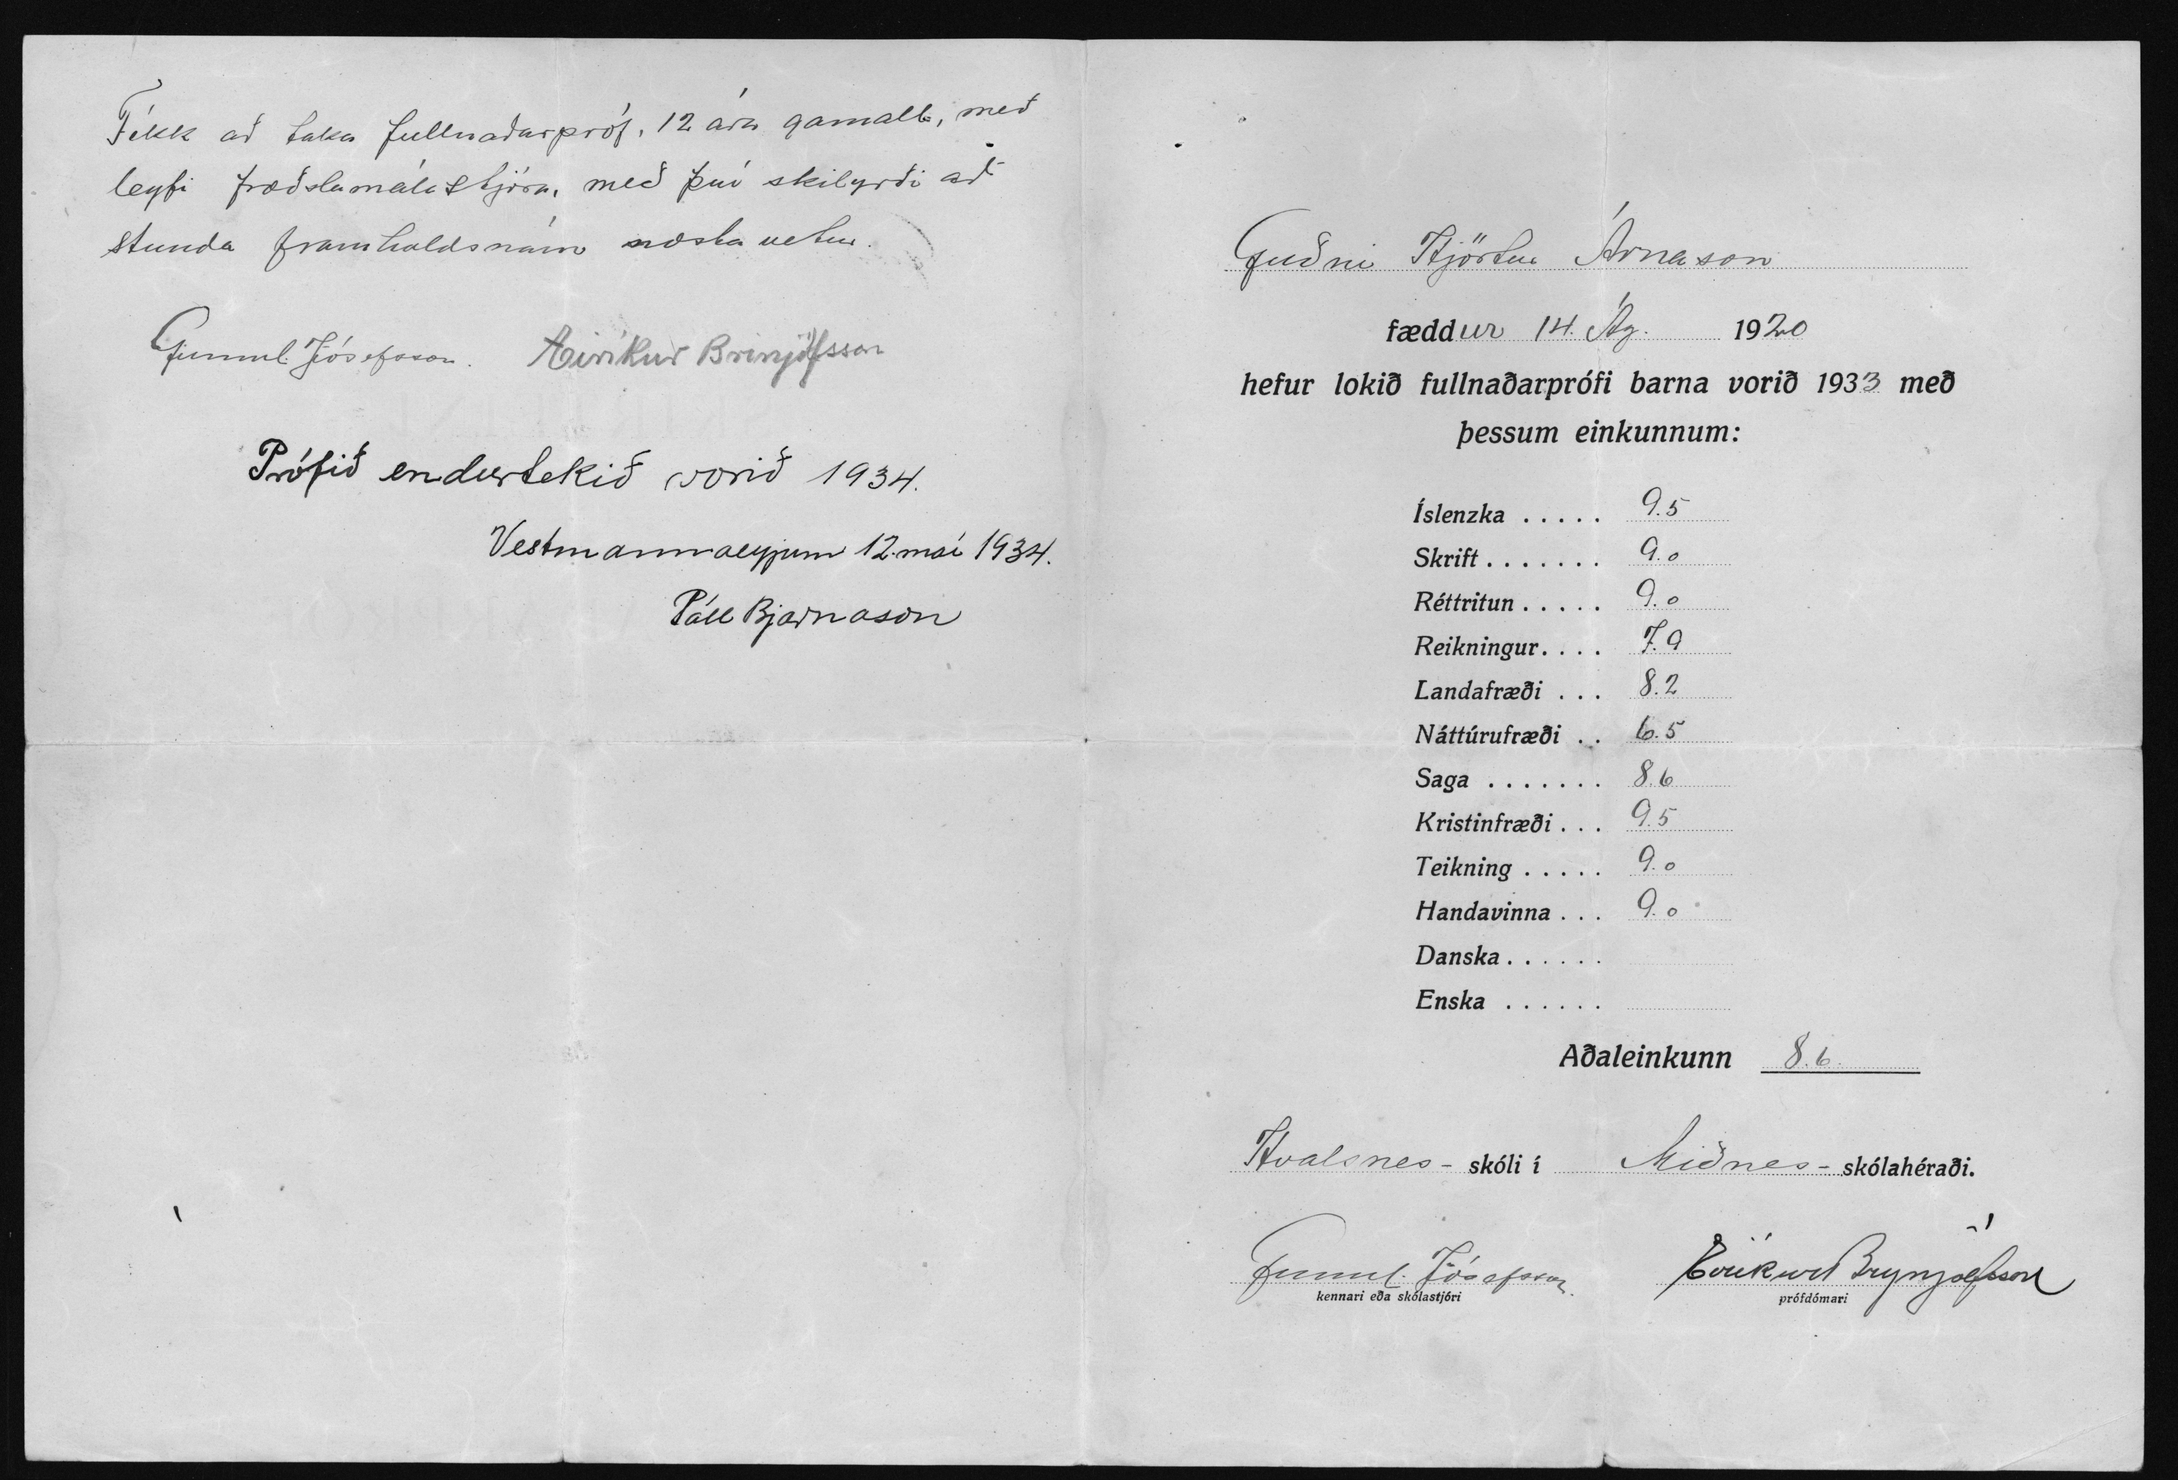 Fékk að taka fullnaðarpróf, 12 ára gamalt, með
leyfi fræðslumálastjóra, með því skilyrði að
stunda framhaldsnám næsta vetur.
Gunnl. Jósefsson. Eiríkur Brinjólfsson
Prófið endurtekið vorið 1934.
Vestmannaeyjum 12. maí 1934.
Páll Bjarnason
Guðni Hjörtur Árnason
fæddur 14. Ág. 1920
hefur lokið fullnaðarprófi barna vorið 1933 með
þessum einkunnum:
Íslenzka ..... 9.5
Skrift ....... 9.0
Réttritun ..... 9.0
Reikningur.... 7.9
Landafræði ... 8.2
Náttúrufræði .. 6.5
Saga ....... 8.6
Kristinfræði ... 9.5
Teikning ..... 9.0
Handavinna ... 9.0
Danska ......
Enska ......
Aðaleinkunn 8.6.
Hvalsnes- skóli í Miðnes- skólahéraði.
Gunnl. Jósefsson. Eiríkur Brynjólfsson
kennari eða skólastjóri prófdómari